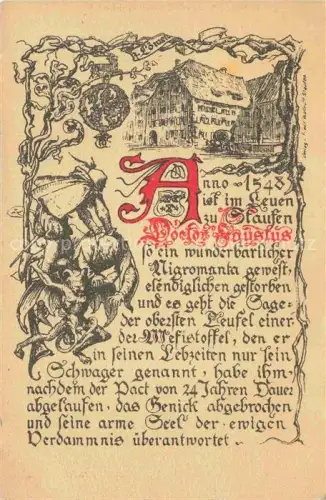 Anno - 1543 -
ist im Leuen
zu Staufen
Doctor Faustus
so ein wunderbarlicher
Nigromanta gewest,
elendiglichen gestorben
und es geht die Sage -
der obersten Teufel einer -
der Mefistoffel, den er
in seinen Lebzeiten nur sein
Schwager genannt, habe ihm -
nachdem der Pact von 24 Jahren Dauer
abgelaufen, das Genick abgebrochen
und seine arme Seel der ewigen
Verdammnis überantwortet -